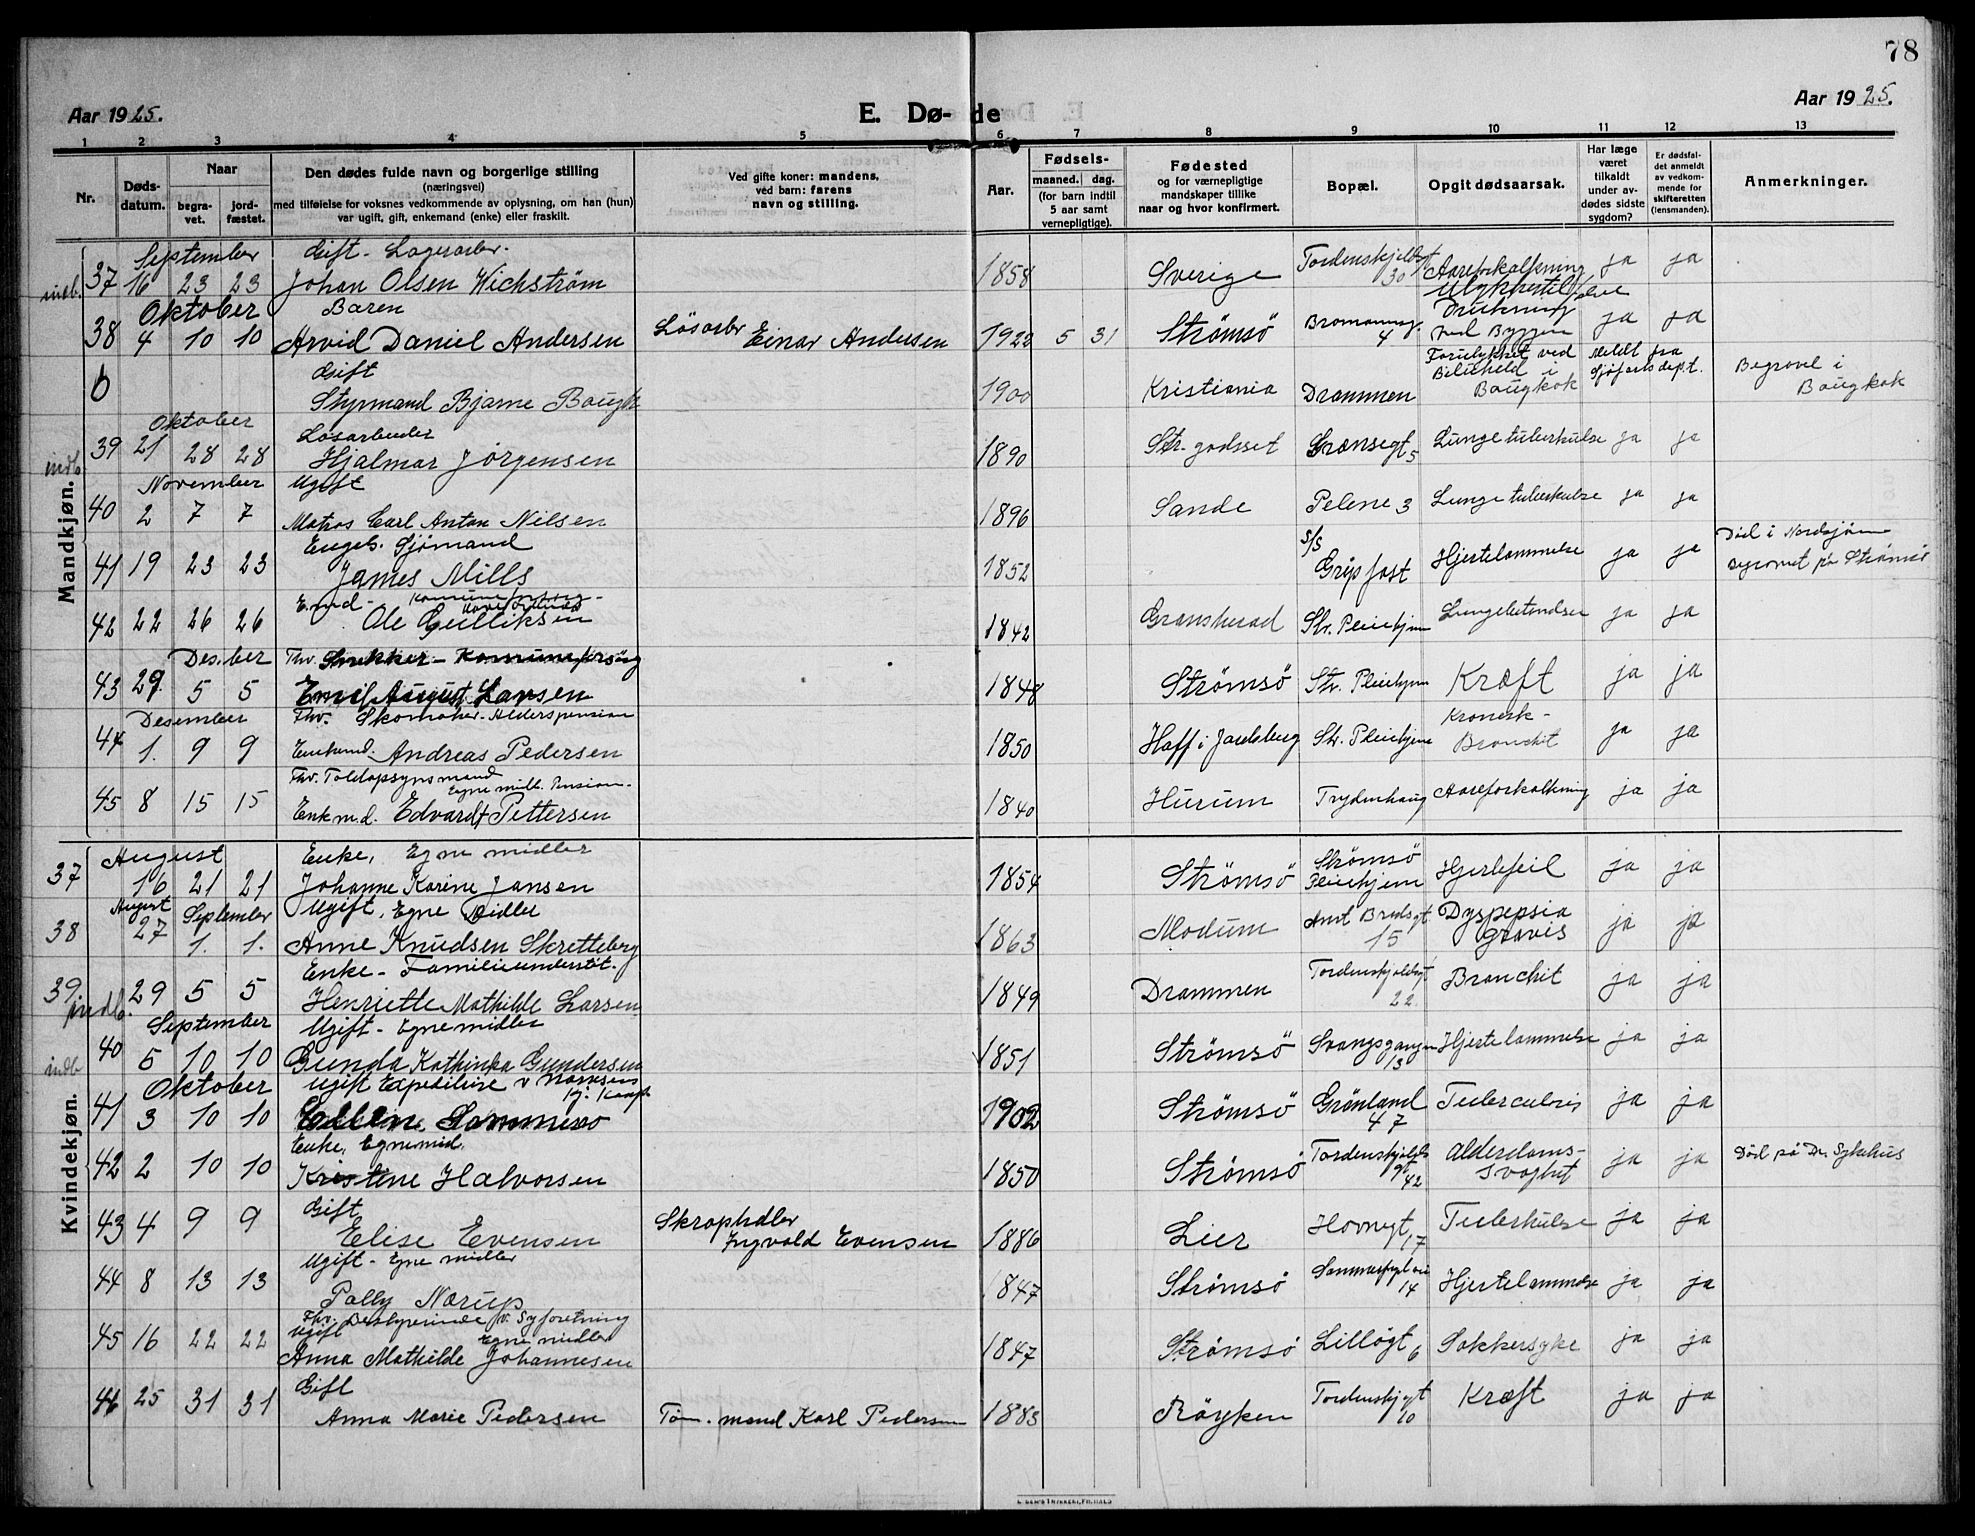 78
Aar 1925.
E. Dø- de
Aar 1925.
1 2 3 4 5 6 7 8 9 10 11 12 13
Nr.
Døds-
datum.
Naar
begra-
vet.
jord-
fæstet.
Den dødes fulde navn og borgerlige stilling
(næringsvei)
med tilføielse for voksnes vedkommende av oplysning, om han (hun)
var ugift, gift, enkemand (enke) eller fraskilt.
Ved gifte koner: mandens,
ved barn: farens
navn og stilling.
Aar.
Fødsels-
maaned. dag.
(for barn indtil
5 aar samt
vernepligtige).
Fødested
og for værnepligtige
mandskaper tillike
naar og hvor konfirmert.
Bopæl.
Opgit dødsaarsak.
Har læge
været
tilkaldt
under av-
dødes sidste
sygdom?
Er dødsfal-
det anmeldt
av vedkom-
mende for
skifteretten
(lensmanden).
Anmerkninger.
Mandkjøn.
September Gift. Lagerarbr. Tordenskjoldsgt
indb. 37 16 23 23 Johan Olsen Wichstrøm 1858 Sverige 30 Aareforkalkning ja ja
Oktober Baren Ulykkestilfælde
38 4 10 10 Arvid Daniel Andersen Løsarbr Einar Andersen 1922 5 31 Strømsö Bromannsg. 4 Drukning ved Byggin ja ja
Gift Forulykket ved Meldt fra Begravet i
0 Styrmand Bjarne 1900 Kristiania Drammen Biluheld i Bangkok Sjøfartsdept. Bangkok
Oktober Løsarbeider
indb. 39 21 28 28 Hjalmar Jørgensen 1890 Str. godsset Grænsegt 5 Lungetuberkulse ja ja
November Ugift
40 2 7 7 Matros Carl Anton Nilsen 1896 Sande Pelene 3 Lungetuberkulse ja ja
Engels. Sjømand S/S Død i Nordsjøen
41 19 23 23 James Mills 1852 Gripfast Hjertelammelse ja ja begravet på Strømsö
Emd - Komuneforsørg-
42 22 26 26 Ole Gulliksen 1842 Gransherad Str. Pleiehjem Lungebetendelse ja ja
Des.ber Fhv. Snekker - Komuneforsörg
43 29. 5 5 Emil August Larsen 1848 Strømsö Str. Pleiehjem Kræft ja ja
Desember Fhv. Skomaker. Alderspension Kronisk-
44 1. 9 9 Enkemd. Andreas Pedersen 1850 Hoff i Jarlsberg Str. Pleiehjem Bronchit ja ja
Fhv. Toldopsynsmand Egne midl. Pension.
45 8 15 15 Enkm.d. Edvardt Pettersen 1840 Hurum Frydenhaug Aareforkalkning ja ja
Kvindekjøn.
August Enke, Egne midler Strømsö
37 16 21 21 Johanne Karine Jansen 1854 Strømsö Pleiehjem Hjertefeil ja ja
August September Ugift, Egne Midler
38 27 1. 1. Anne Knudsen Skretteberg 1863 Modum Amt Bredsgt 15 Dyspepsia gravis ja ja
Enke - Familieunderstöt. Tordenskjoldsgt
39 indb. 29 5 5 Henriette Mathilde Larsen 1849 Drammen 22. Bronchit ja ja
September Ugift - Egne midler
indb 40 5 10 10 Gunda Kathinka Gundersen 1851 Strømsö Svangsgangen 13 Hjertelammelse ja ja
Oktober Ugift Expeditrise v
41 3 10 10 1902 Strømsö Grönland 47 Tuberculosis ja ja
Enke, Egne mid. Tordenskjolds
42 2 10 10 Kristine Halvorsen 1850 Strømsö gt 42 Alderdoms- svaghet ja ja Död på Dr. Sykehus
Gift Skraphdler
43 4 9 9 Elise Evensen Ingvald Evensen 1886 Lier Hovnegt 17 Tuberkulse ja ja
Ugift - Egne midler
44 8 13 13 Polly Nærup 1847 Strømsö Sommerfryd 14 Hjertelammelse ja ja
Fhv. Bestyrerinde v. Syforetning
Ugift Egne midler
45 16 22 22 Anna Mathilde Johannesen 1847 Strømsö Lilløgt 6 Sokkersyke ja ja
Gift
46 25 31 31 Anna Marie Pedersen Töm.mand Karl Pedersen 1883 Röyken Tordenskjgt 10 Kræft ja ja